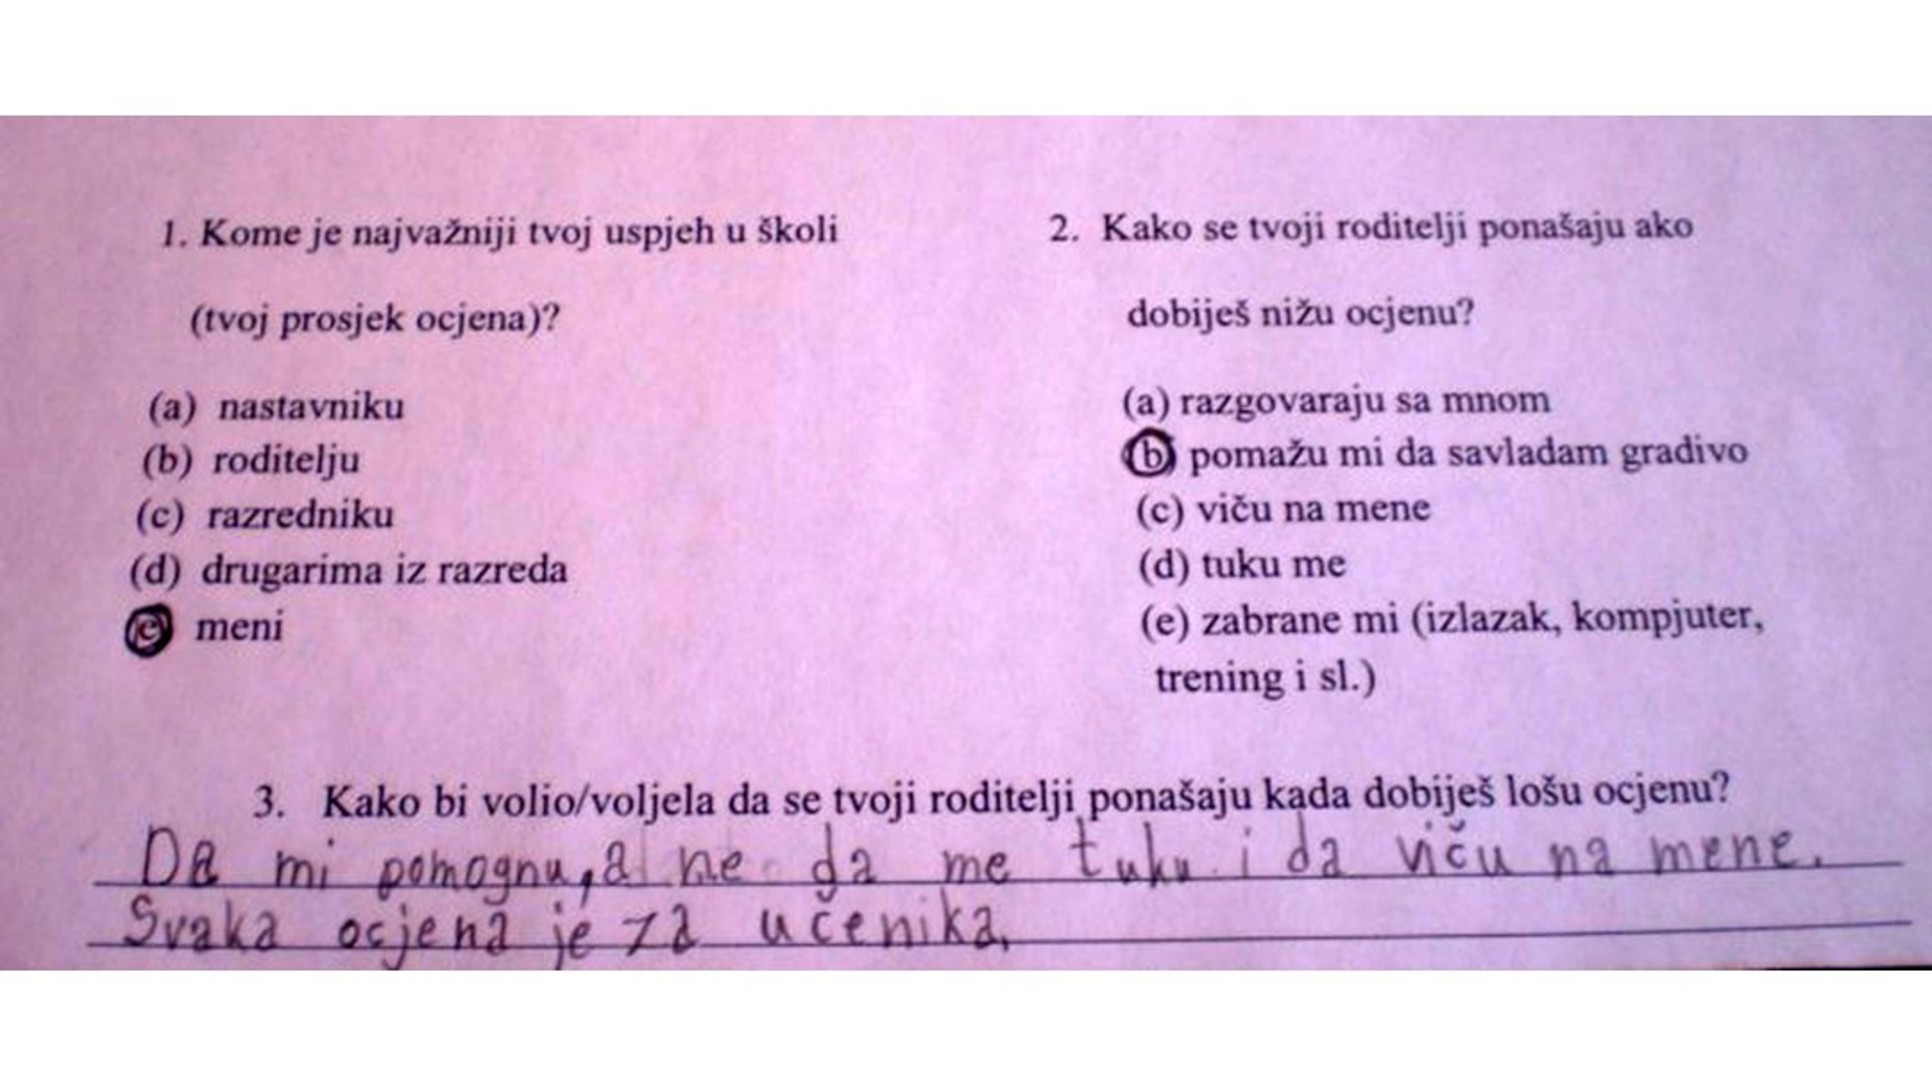 1. Kome je najvažniji tvoj uspjeh u školi
(tvoj prosjek ocjena)?
(a) nastavniku
(b) roditelju
(c) razredniku
(d) drugarima iz razreda
(e) meni
2. Kako se tvoji roditelji ponašaju ako
dobiješ nižu ocjenu?
(a) razgovaraju sa mnom
(b) pomažu mi da savladam gradivo
(c) viču na mene
(d) tuku me
(e) zabrane mi (izlazak, kompjuter,
trening i sl.)
3. Kako bi volio/voljela da se tvoji roditelji ponašaju kada dobiješ lošu ocjenu?
Da mi pomognu, a ne da me tuku i da viču na mene.
Svaka ocjena je za učenika.